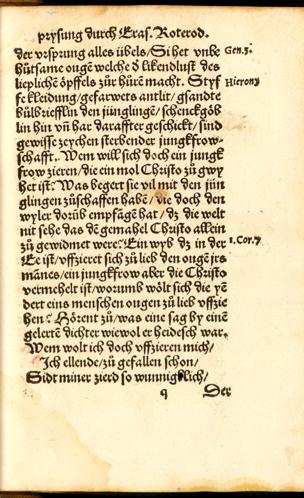 prysung durch Eras. Roterod.
der vrsprung alles übels/Si het vnbe
Gen.3.
hůtsame ougē welche ď līkendlust des
lieplichē öpffels zůr hůrē macht. Styf
Hieronȝ
fe kleidung/gefarwets antlit/gsandte
bůlbriefflin den jünglingē/schenckgöb
lin hin vn̄ har daraffter geschickt/sind
gewisse zeychen sterbender jungkfrow-
schafft. Wem will sich doch ein jungk
frow zieren/die ein mol Christo zů gwy
het ist? Was begert sie vil mit den jün
glingen zůschaffen habē/die doch den
wyler dorůb empfāgē hat/dȝ die welt
nit sehe das dē gemahel Christo allein
zů gewidmet were? Ein wyb dȝ in der
1.Cor.7
Ee ist/vffzieret sich zů lieb den ougē jrs
mānes/ein jungkfrow aber die Christo
vermehelt ist/worumb wölt sich die yē
dert eins menschen ougen zů lieb vffzie
hen? Hörent zů/was eine sag by einē
gelertē dichter wiewol er heidesch war.
Wem wolt ich doch vffzieren mich/
Ich ellende/zů gefallen schon/
Sidt miner zierd so wunnigklich/
q Der